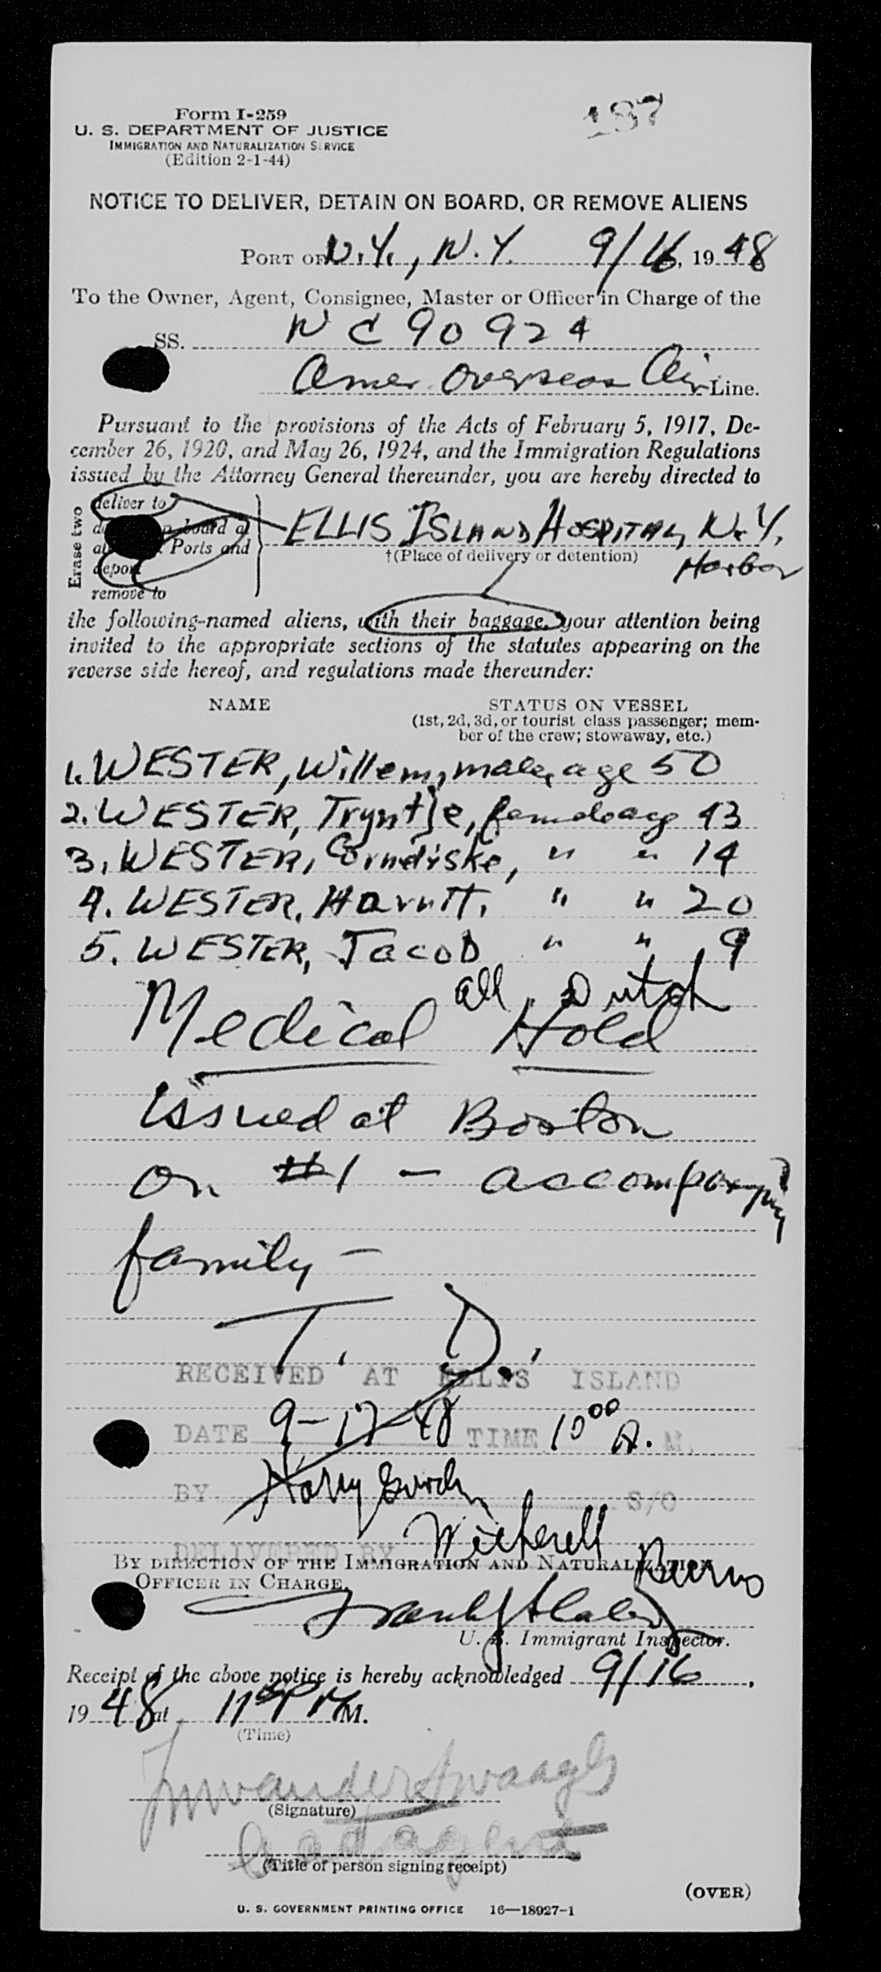 187
Form I-259
U. S. DEPARTMENT OF JUSTICE
IMMIGRATION AND NATURALIZATION SERVICE
(Edition 2-1-44)
NOTICE TO DELIVER, DETAIN ON BOARD, OR REMOVE ALIENS
PORT OF N.Y., N.Y. 9/16, 1948
To the Owner, Agent, Consignee, Master or Officer in Charge of the
SS. NC 90924
Amer. Overseas Air Line.
Pursuant to the provisions of the Acts of February 5, 1917, De-
cember 26, 1920, and May 26, 1924, and the Immigration Regulations
issued by the Attorney General thereunder, you are hereby directed to
Erase two
deliver to
board at
Ports and
deport
remove to
ELLIS ISLAND HOSPITAL, N.Y.
†(Place of delivery or detention)
Harbor
the following-named aliens, with their baggage, your attention being
invited to the appropriate sections of the statutes appearing on the
reverse side hereof, and regulations made thereunder:
NAME STATUS ON VESSEL
(1st, 2d, 3d, or tourist class passenger; mem-
ber of the crew; stowaway, etc.)
1. WESTER, Willem, male, age 50
2. WESTER, Tryntje, female age 43
3. WESTER, " " 14
4. WESTER, " " 20
5. WESTER, Jacob " " 9
all Dutch
Medical Hold
issued at Boston
on #1 — accompanying
family —
T. D.
RECEIVED AT ELLIS ISLAND
DATE 9-17-48 TIME 10 00 A. M.
BY Harry S/O
DELIVERED BY Witherell
Burns
BY DIRECTION OF THE IMMIGRATION AND NATURALIZATION
OFFICER IN CHARGE.
U. S. Immigrant Inspector.
Receipt of the above notice is hereby acknowledged 9/16,
1948 at 11 PM M.
(Time)
(Signature)
(Title of person signing receipt)
(OVER)
U. S. GOVERNMENT PRINTING OFFICE 16—18927-1